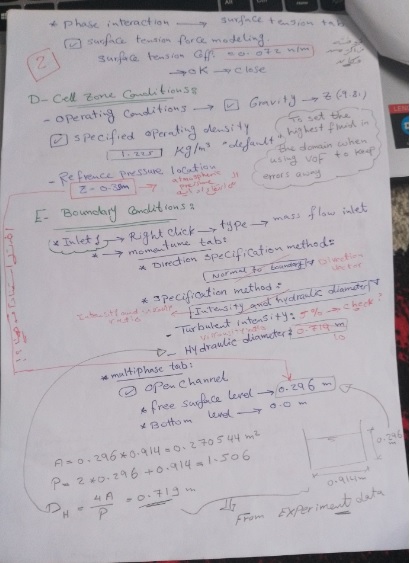 * Phase interaction → surface tension tab
☑ surface tension force modeling
surface tension Coff. = 0.072 n/m
→ OK → close
2
D- Cell Zone Conditions:
- Operating Conditions → ☑ Gravity → Z (9.81)
☑ Specified operating density
1.225 kg/m³ "default"
To set the
highest fluid in
the domain when
using VOF to keep
errors away
- Refrence pressure location
atmospheric
pressure
E- Boundary Conditions:
* Inlet → Right click → type → mass flow inlet
* → momentume tab:
* Direction specification method:
Normal to boundary
Direction
vector
* Specification method:
Intensity and hydraulic diameter
Intensity and
ratio
- Turbulent intensity: 5% → check?
- Hydraulic diameter: 0.719 m
10
* multiphase tab:
☑ Open channel
* free surface level → 0.296 m
* Bottom level → 0.0 m
A = 0.296 * 0.914 = 0.270544 m²
P = 2 * 0.296 + 0.914 = 1.506
D_H = 4A/P = 0.719 m
0.296
0.914m
From Experiment data